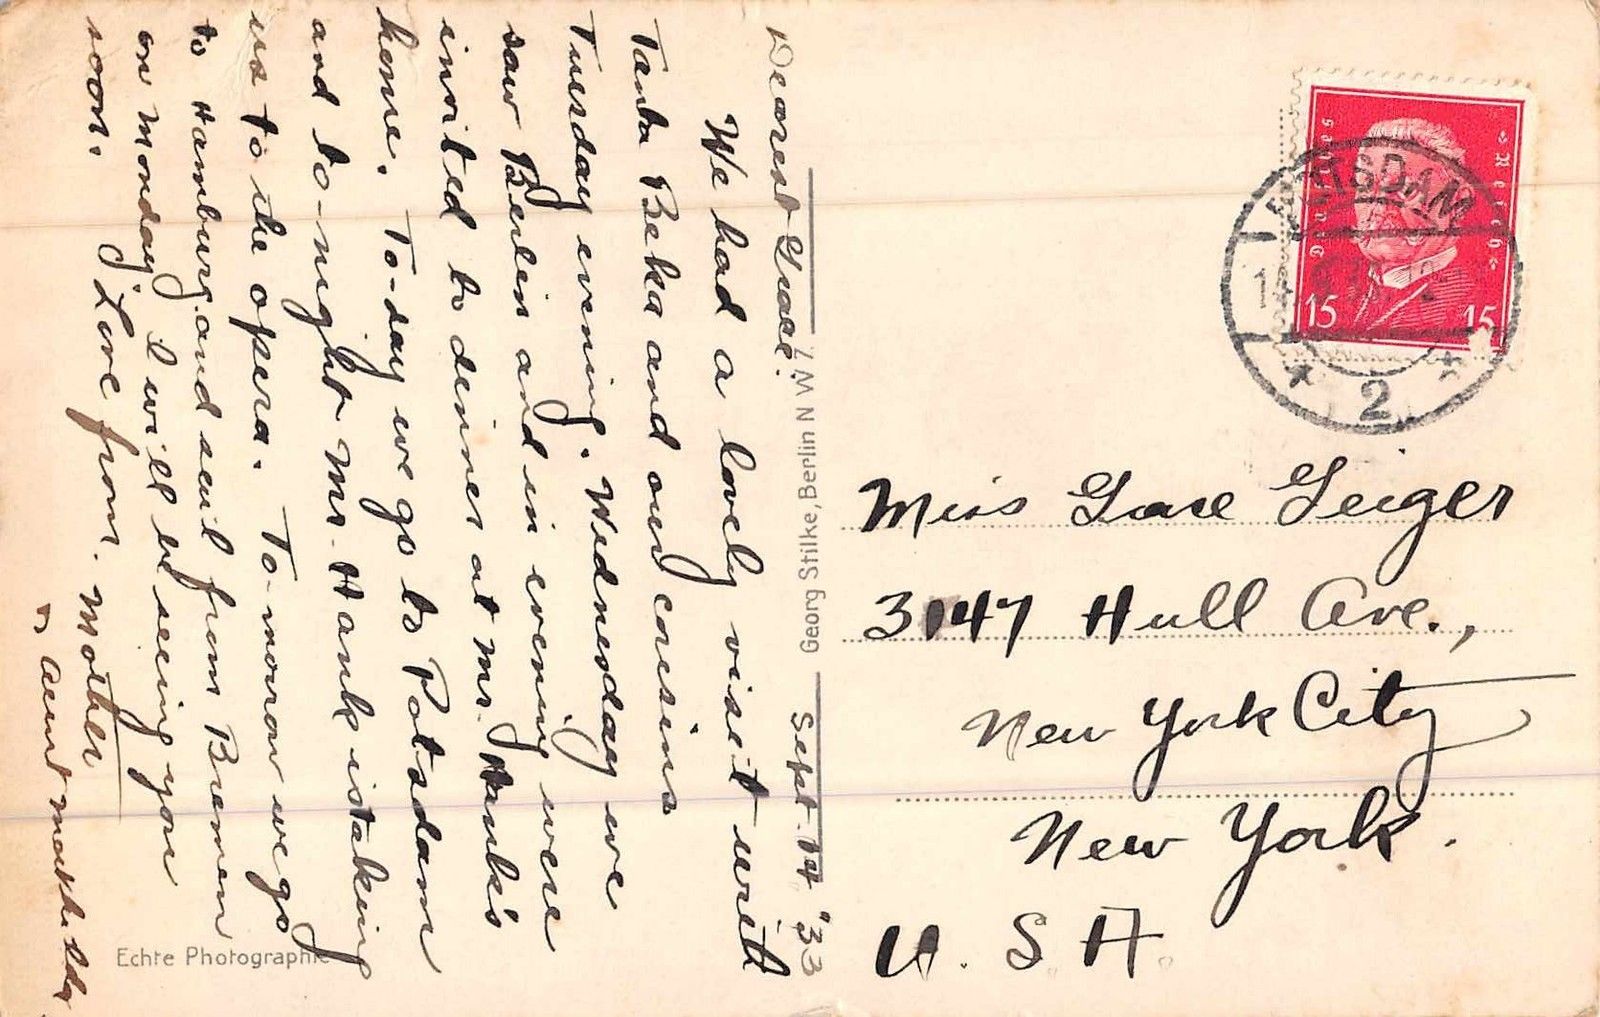 Sept. 14 "33
Dearest Grace:
We had a lovely visit with
Tante Beka and our cousins
Tuesday evening. Wednesday we
saw Berlin and in evening were
invited to dinner at Mr. Hank's
home. To-day we go to Potsdam
and to-night Mr. Hank is taking
us to the opera. To-morrow we go
to Hamburg and sail from Bremen
on Monday. I will be seeing you
soon. Love from. Mother
" Aunt
Georg Stilke, Berlin N W 7.
Echte Photographie
Deutsches
»Reich«
15 15
POTSDAM
2
Miss Grace Geiger
3147 Hull Ave.,
New York City
New York.
U. S. A.